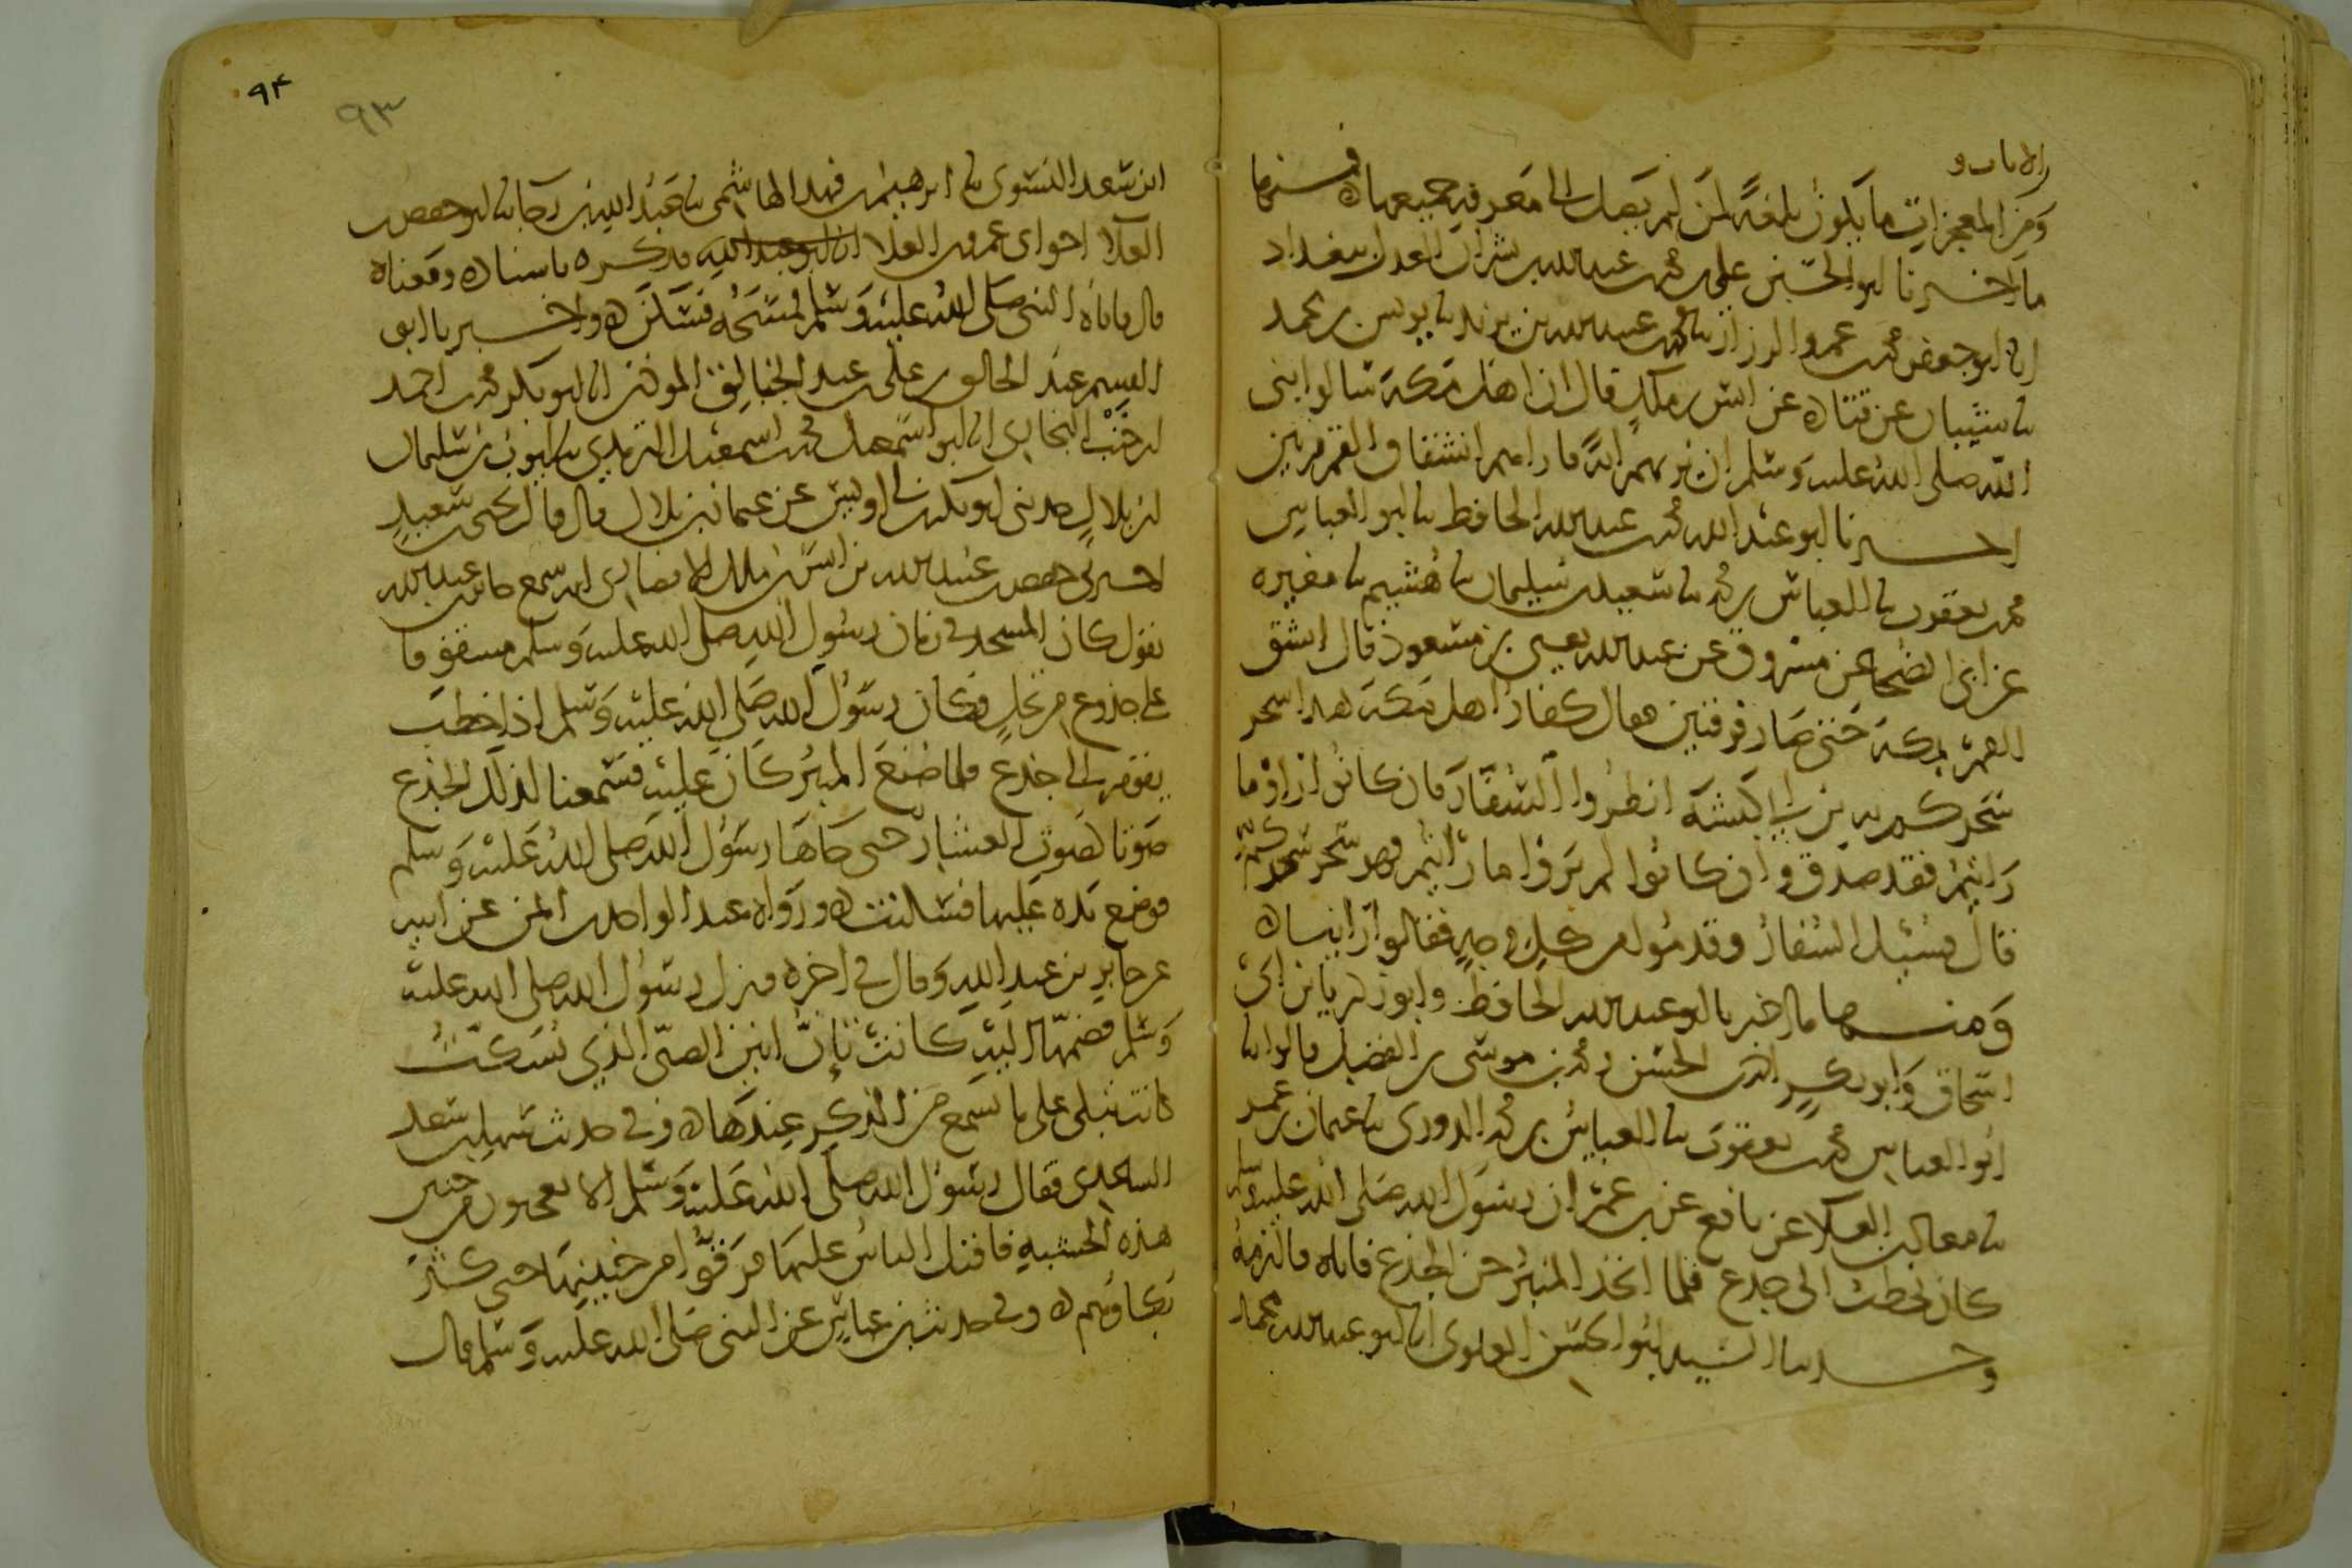 من الآيات و
ومن المعجزات ما يكون بلغة لمن لم يصل الى معرفة جميعها ه فمنها
ما اخبرنا ابو الحسين علي بن محمد بن عبد الله بن بشران العدل ببغداد
انا ابو جعفر محمد بن عمرو الرزاز نا محمد بن عبيد الله بن يزيد نا يونس بن محمد
نا شيبان عن قتادة عن انس بن ملك قال ان اهل مكة سالوا نبي
الله صلى الله عليه وسلم ان يريهم اية فاراهم انشقاق القمر مرتين
اخبرنا ابو عبد الله محمد بن عبد الله الحافظ نا ابو العباس
محمد بن يعقوب نا العباس بن محمد نا سعيد بن سليمان نا هشيم نا مغيرة
عن ابي الضحا عن مسروق عن عبد الله يعني بن مسعود قال انشق
القمر بمكة حتى صار فرقتين فقال كفار اهل مكة هذا سحر
سحركم به بن ابي كبشة انظروا السفار فان كانوا راوا ما
رايتم فقد صدق وان كانوا لم يروا ما رايتم فهو سحر سحركم به
قال فسئل السفار وقدموا من كل وجه فقالوا راينا ه
ومنها ما اخبرنا ابو عبد الله الحافظ وابو زكريا بن ابي
اسحاق وابو بكر احمد بن الحسن ومحمد بن موسى بن الفضل قالوا نا
ابو العباس محمد بن يعقوب نا العباس بن محمد الدوري نا عثمان بن عمر
نا معاذ بن العلا عن نافع عن بن عمر ان رسول الله صلى الله عليه وسلم
كان يخطب الى جذع فلما اتخذ المنبر حن الجذع فاتاه فالتزمه
وحدثنا السيد ابو الحسن العلوي انا ابو عبد الله محمد
٩٤
٩٣
ابن سعد النسوي نا ابرهيم بن فهد الهاشمي نا عبد الله بن رجا نا ابو حفص بن
العلا اخو ابي عمرو بن العلا فذكره باسناده ومعناه
قال فاتاه النبي صلى الله عليه وسلم فمسحه فسكن ه واخبرنا ابو
القسم عبد الخالق بن علي بن عبد الخالق الموذن انا ابو بكر محمد بن احمد
بن خنب البخاري انا ابو اسمعيل محمد بن اسمعيل الترمذي نا ايوب بن سليمان
بن بلال حدثني ابو بكر بن ابي اويس عن سليمان بن بلال قال قال يحيى بن سعيد
اخبرني حفص بن عبيد الله بن انس بن ملك الانصاري انه سمع جابر بن عبد الله
يقول كان المسجد في زمان رسول الله صلى الله عليه وسلم مسقوفا
على جذوع من نخل فكان رسول الله صلى الله عليه وسلم اذا خطب
يقوم الى جذع فلما صنع المنبر كان عليه فسمعنا لذلك الجذع
صوتا كصوت العشار حتى جاها رسول الله صلى الله عليه وسلم
فوضع يده عليها فسكنت ه ورواه عبد الواحد بن ايمن عن ابيه
عن جابر بن عبد الله وقال في اخره فنزل رسول الله صلى الله عليه
وسلم فضمها اليه كانت تان انين الصبي الذي يسكت
كانت تبكي على ما تسمع من الذكر عندها ه وفي حديث سهل بن سعد
الساعدي فقال رسول الله صلى الله عليه وسلم الا تعجبون من حنين
هذه الخشبة فاقبل الناس عليها فرقوا من حنينها حتى كثر
بكاوهم ه وفي حديث بن عباس عن النبي صلى الله عليه وسلم قال